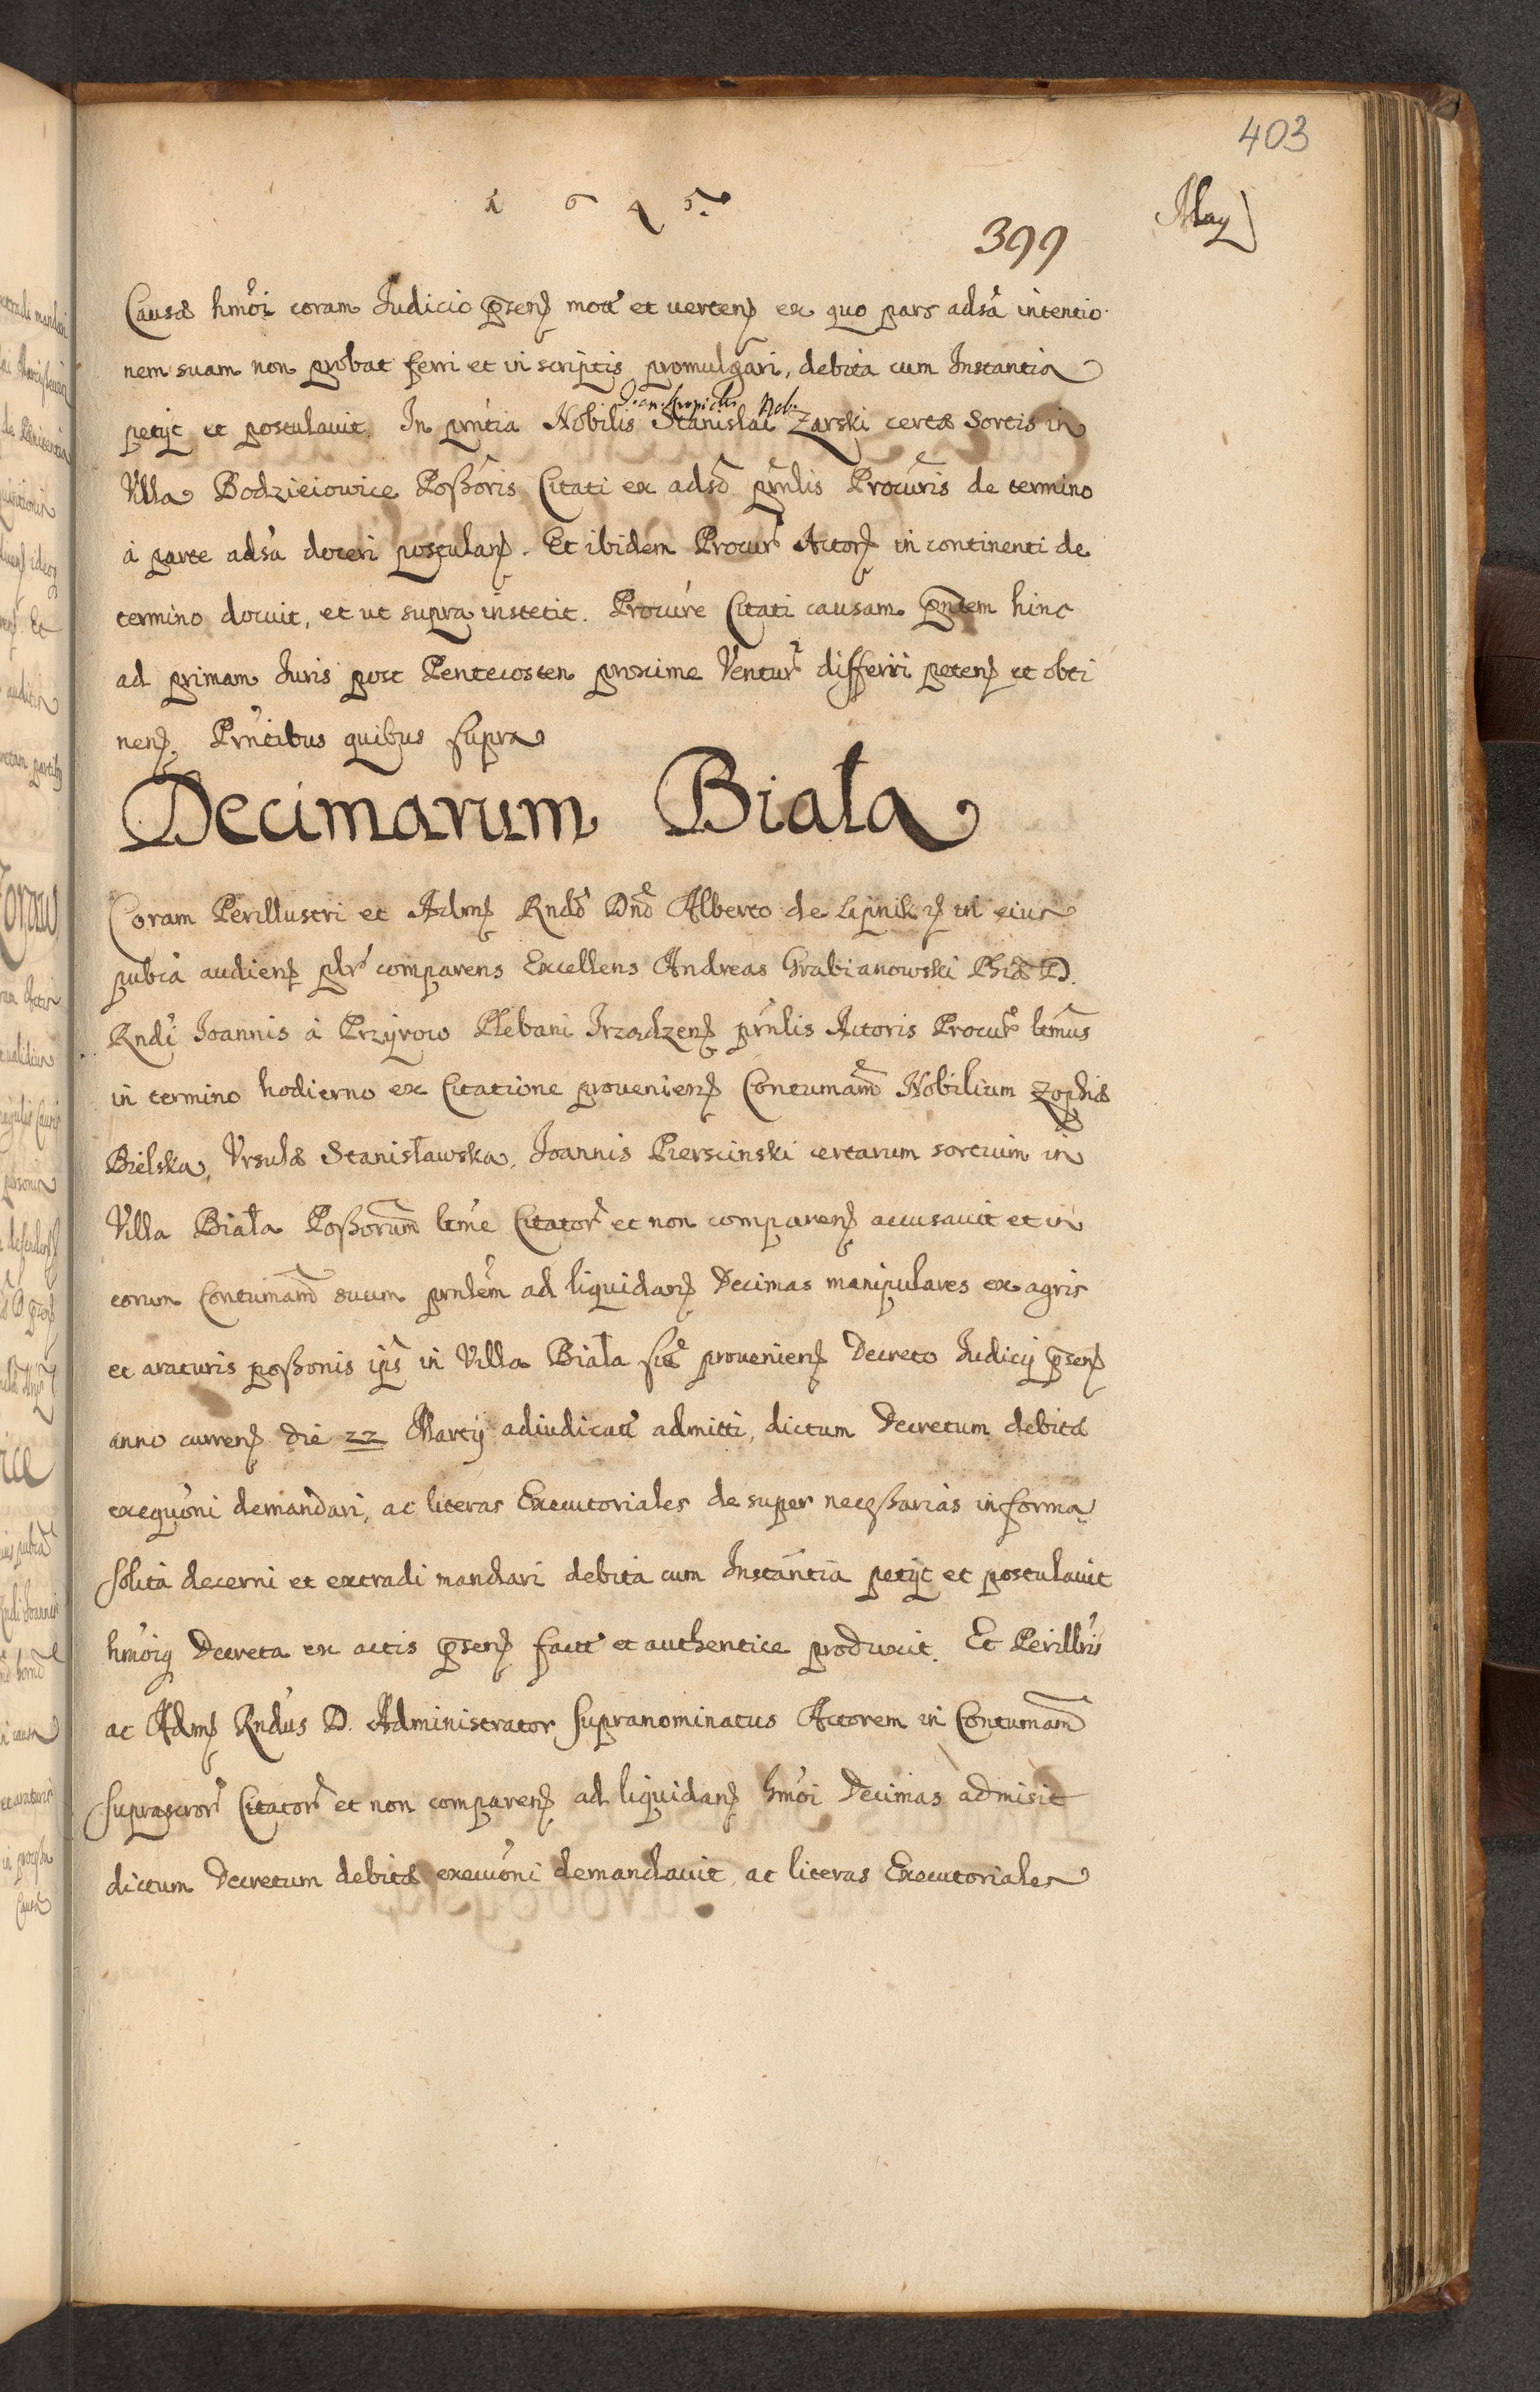 403
1645.
May
399
Causæ hmo̊i coram Judicio p̃senꝭ motæ et vertenꝭ ex quo pars adsa̓ intentio
nem suam non probat ferri et in scriptis promulgari, debita cum Instantia
petijt et postulavit. In prntia Nobilis Stanislai Nob. Zarski certæ Sortis in
Villa Bodzieiowice Poßoris Citati ex adso prnlis Procuris de termino
à parte adsa̓ doceri postulanꝭ. Et ibidem Procur Actorꝭ in continenti de
termino docuit, et ut supra institit. Procure Citati causam p̃ntem hinc
ad primam Juris post Pentecosten proxime Ventur differri petenꝭ et obti
nenꝭ. Prntibus quibus supra
Decimarum Biała
Coram Perillustri et Admꝭ Rndo Dno Alberto de Lipnikꝭ in eius
pubca audienꝭ plr comparens Excellens Andreas Grabianowski Phiæ D.
Rndi Joannis à Przyrow Plebani Irządzenꝭ prnlis Actoris Procur ltmus
in termino hodierno ex Citatione provenienꝭ Contumam Nobilium Zophiæ
Bielska, Ursulæ Stanisławska, Joannis Pierscinski certarum sortium in
Villa Biała Poßorum ltme Citator et non comparenꝭ accusavit et in
eorum Contumam suum prnlem ad liquidanꝭ Decimas manipulares ex agris
et araturis poßonis ips in Villa Biała sitæ provenienꝭ Decreto Judicij p̃senꝭ
anno currenꝭ die 22 Martij adiudicatæ admitti, dictum Decretum debitæ
exequoni demandari, ac literas Executoriales de super neceßarias in forma
solita decerni et extradi mandari debita cum Instantia petijt et postulavit
hmoiq Decreta ex actis p̃senꝭ facta et authentice produxit. Et Perillris
ac Admꝭ Rndus D. Administrator supranominatus Actorem in Contumam
suprascror Citator et non comparenꝭ ad liquidanꝭ hmoi Decimas admisit
dictum Decretum debitæ execuoni demandavit, ac literas Executoriales